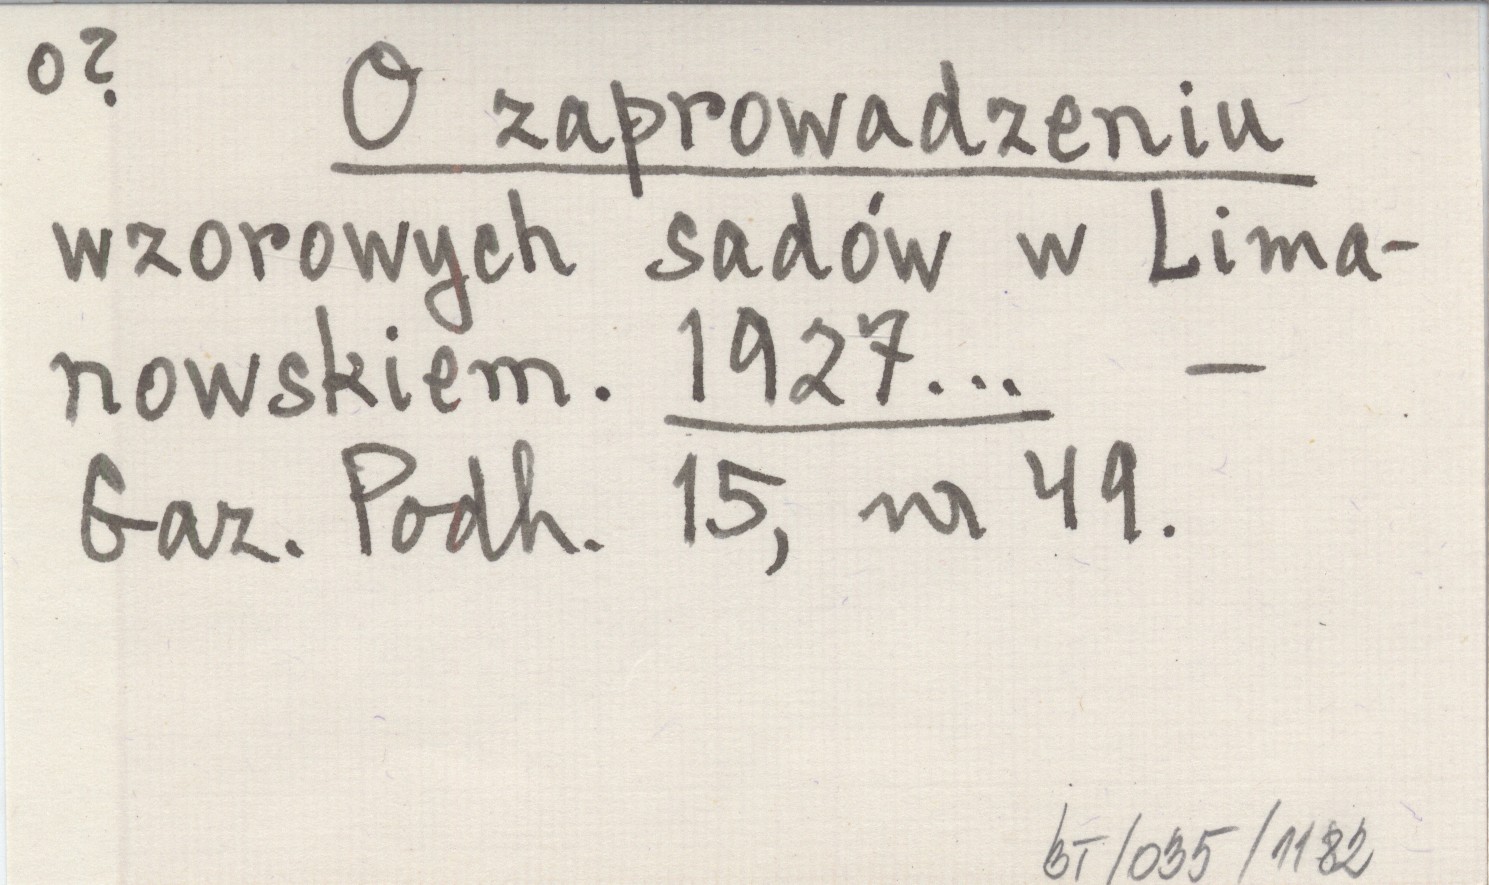 o?
O zaprowadzeniu
wzorowych sadów w Lima-
nowskiem. 1927... —
Gaz. Podh. 15, nr 49.
BT/035/1182